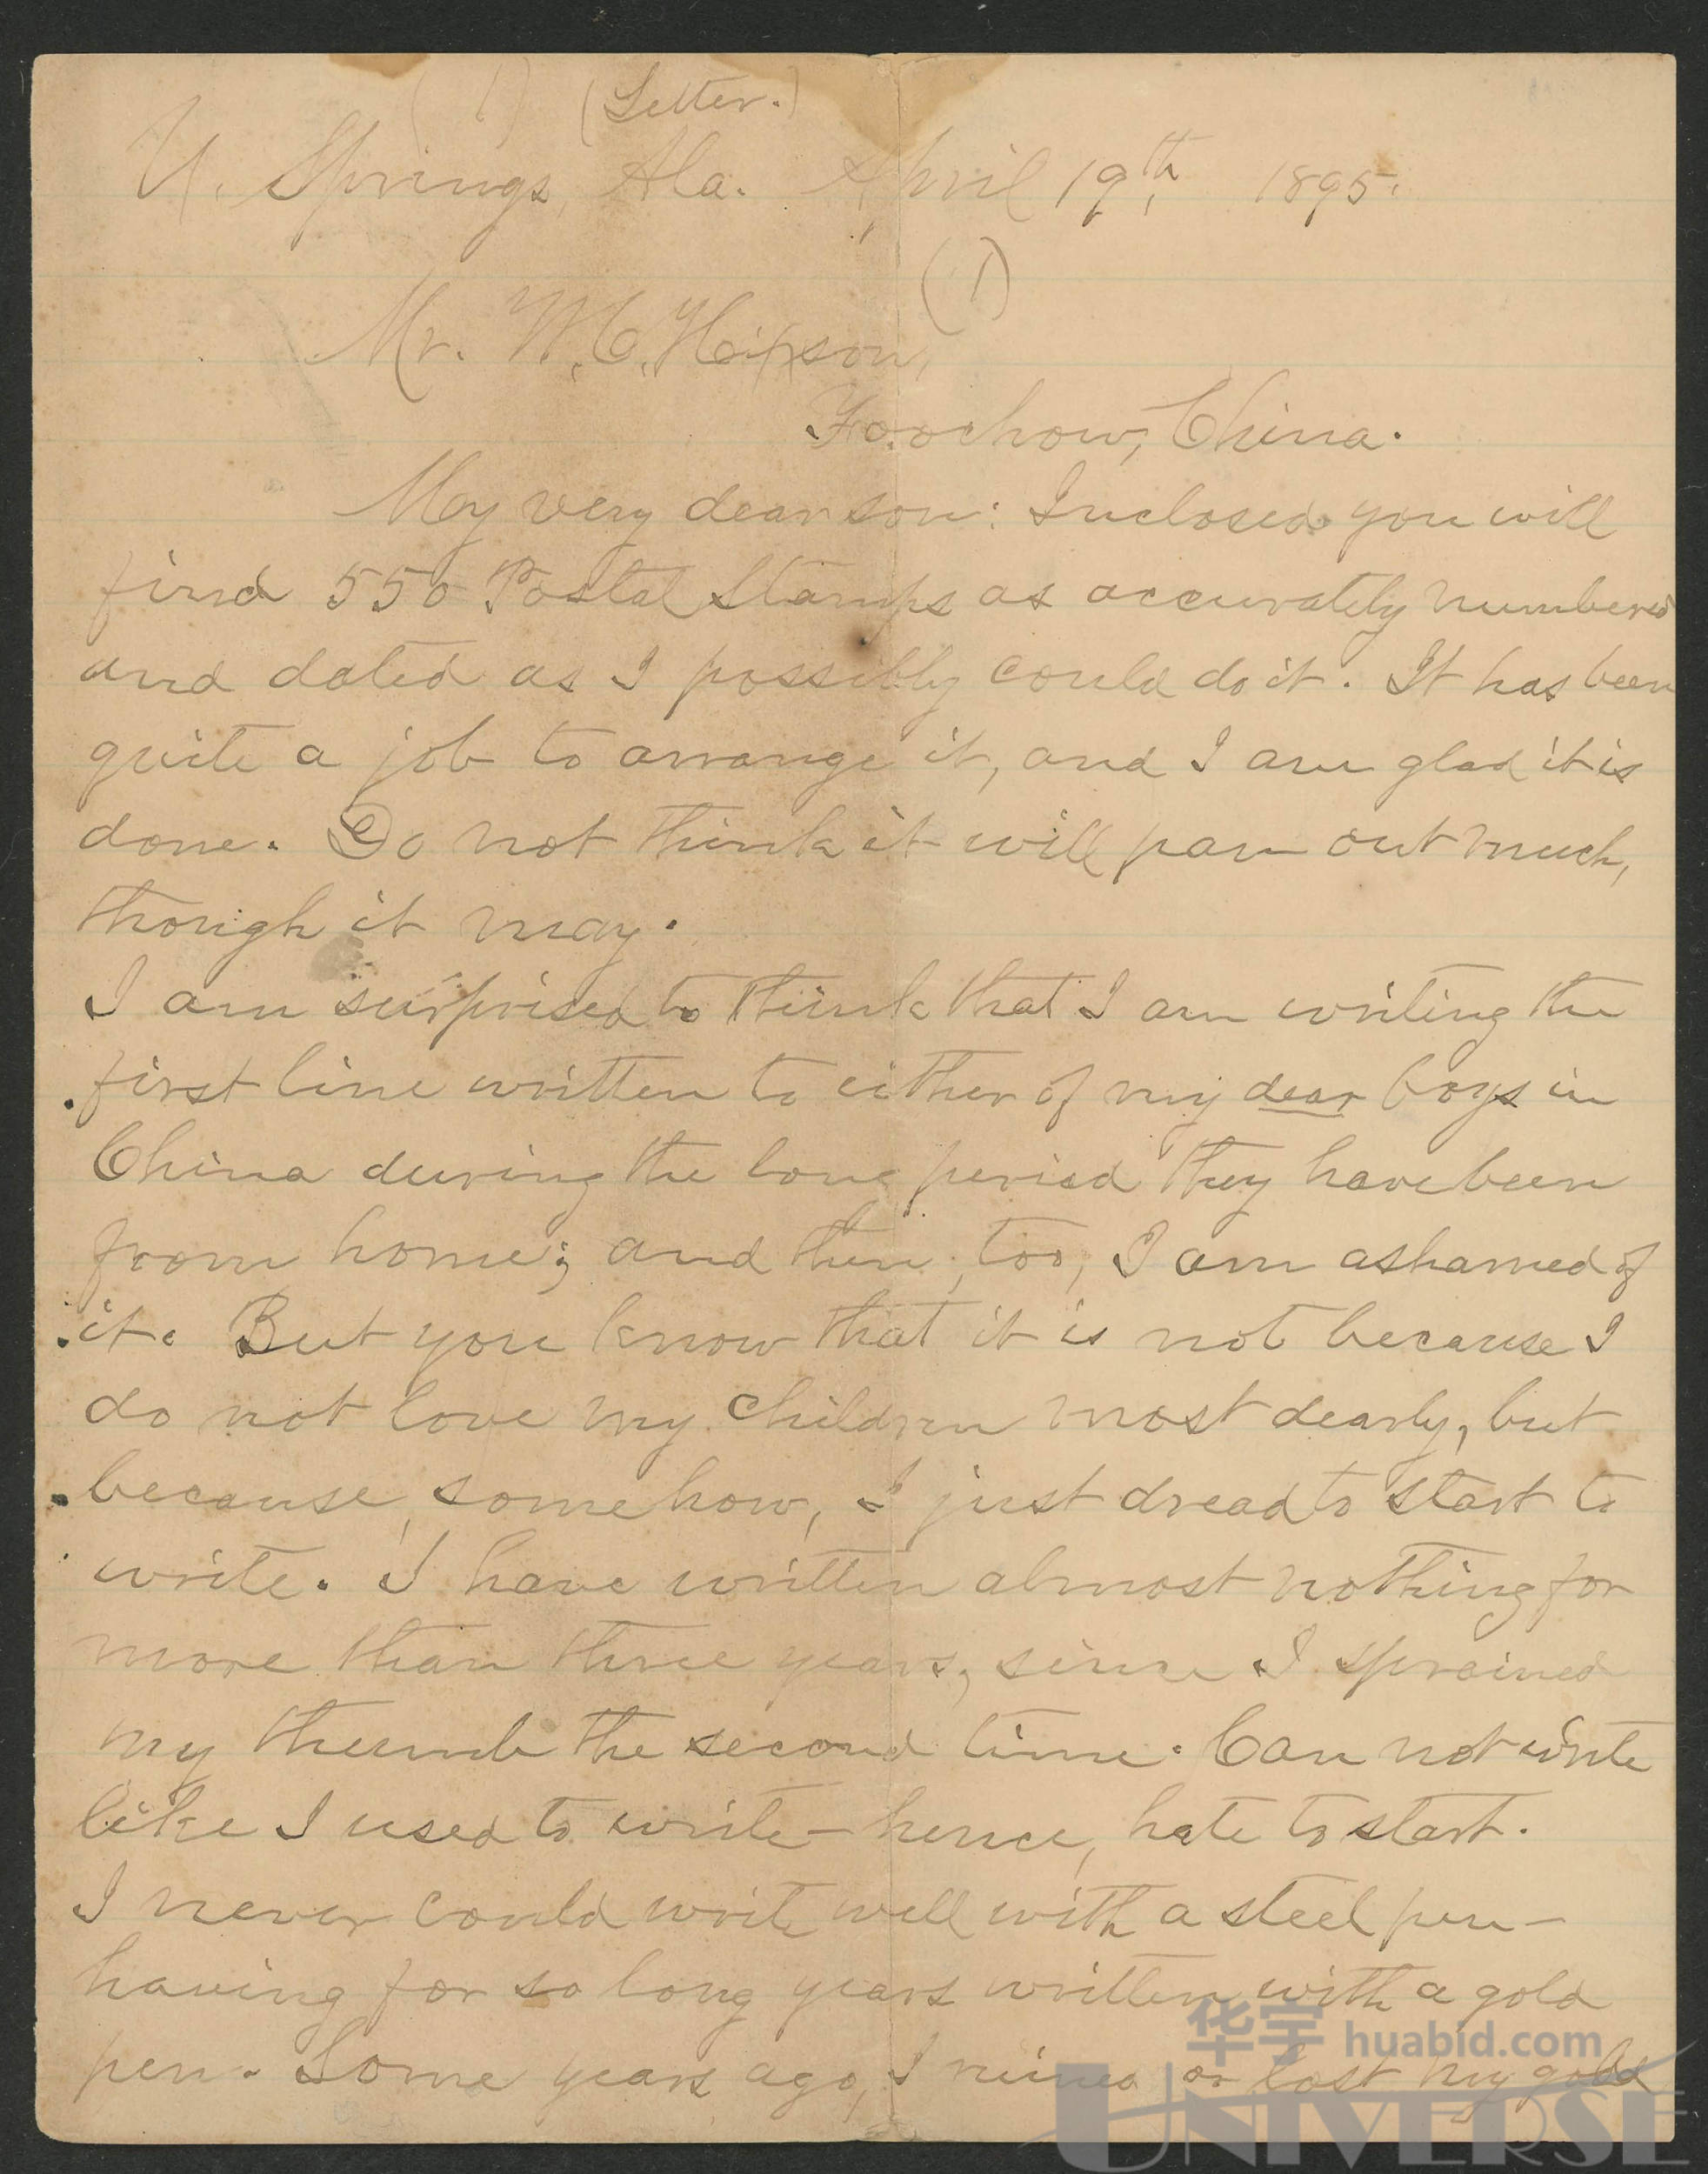 (1) (Letter.)
U. Springs, Ala. April 19th, 1895.
(1)
Mr. W. C. Hixson,
Foochow, China.
My very dear son: Inclosed you will
find 550 Postal Stamps as accurately numbered
and dated as I possibly could do it. It has been
quite a job to arrange it, and I am glad it is
done. Do not think it will pan out much,
though it may.
I am surprised to think that I am writing the
first line written to either of my dear boys in
China during the long period they have been
from home; and then, too, I am ashamed of
it. But you know that it is not because I
do not love my children most dearly, but
because, somehow, I just dread to start to
write. I have written almost nothing for
more than three years, since I sprained
my thumb the second time. Can not write
like I used to write - hence, hate to start.
I never could write well with a steel pen -
having for so long years written with a gold
pen. Some years ago, I ruined or lost my gold
华宇 huabid.com
UNIVERSE